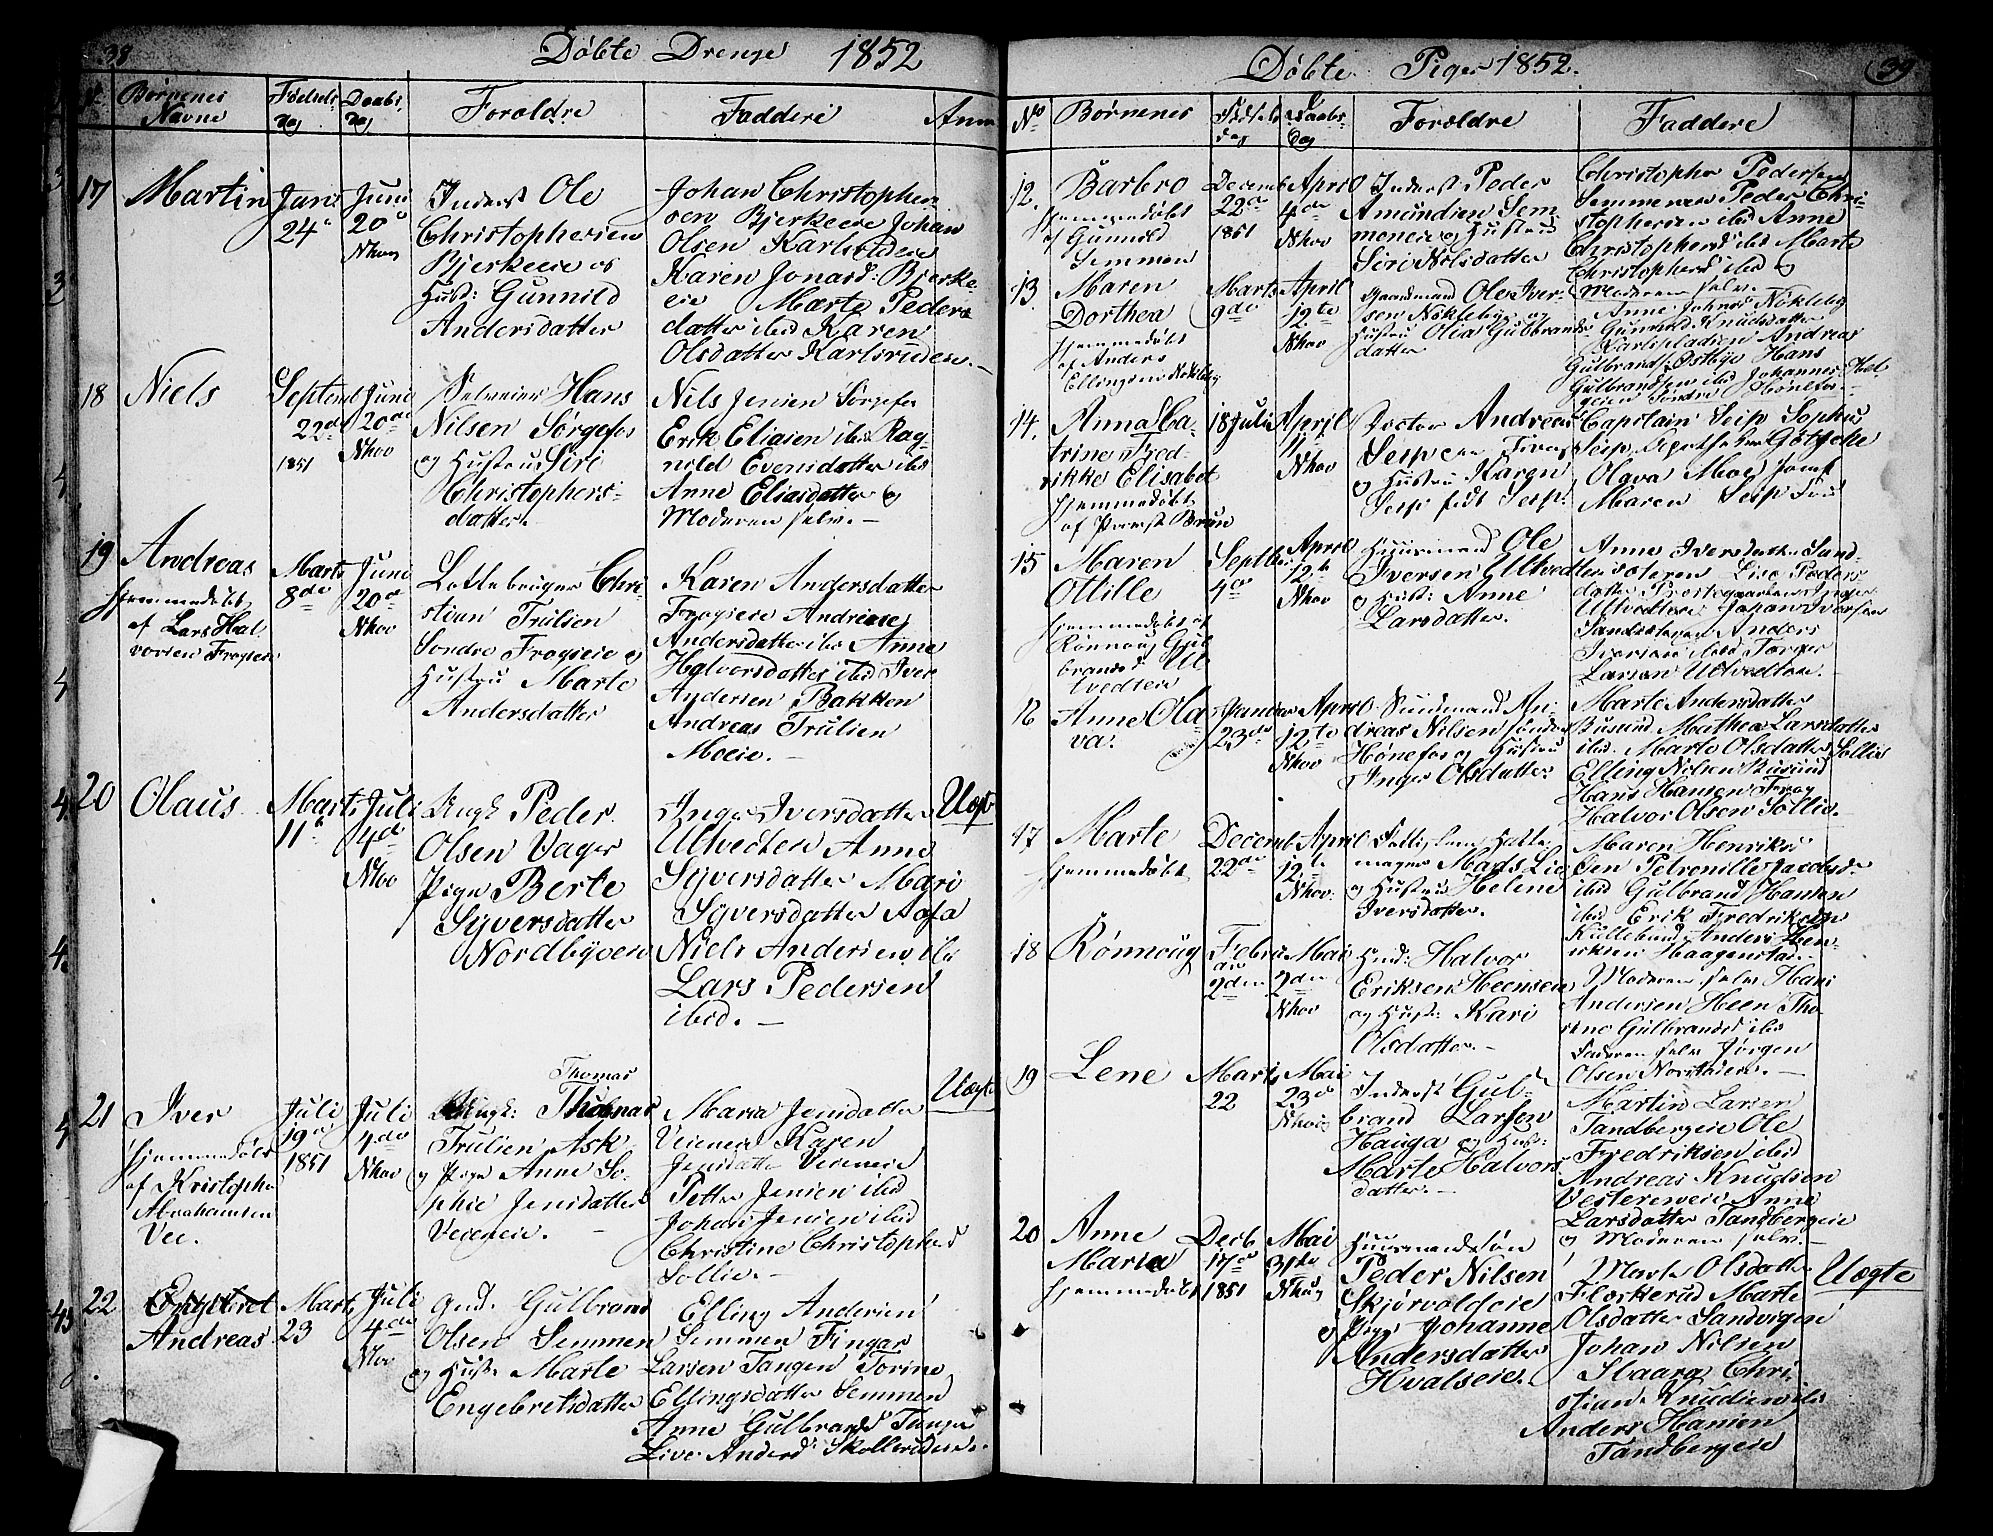 38
Døbte Drenge 1852
Børnenes Navne
Fødsels dag
Daabs dag
Foroldre
Faddere
Anm
17
Martin
Juni 24de
Juni 20de
Nhov
Inderst Ole
Christophersen
Bjerkeeie og
Hust: Gunnild
Andersdatter
Johan Christopher
sen Bjerkeeie Johan
Olsen Karlsrudeie
Karen Jonasd: Bjerke
eie Marte Peders
datter ibid Karen
Olsdatter Karlsrudeie.
18
Niels
Septemb 22de 1851
Juni 20de
Nhov
Selveier Hans
Nilsen Sørgefos
og Hustru Siri
Christophers
datter.
Nils Jensen Sørgefos
Erik Eliasen ibid Rag
nild Evensdatter ibid
Anne Eliasdatter og
Moderen selv.
19
Andreas
Hjemmedøbt
af Lars Hal
vorsen Frogeie
Marts 8de
Juni 20de
Nhov
Leilebruger Chri
stian Trulsen
Søndre Frogeie og
Hustru Marte
Andersdatter
Karen Andersdatter
Frogeie Andrine
Andersdatter ibid Anne
Halvorsdatter ibid Iver
Andersen Bakken
Andreas Trulsen
Moeie.
20
Olaus
Marts 11te
Juli 4de
Nhov
Ungk: Peder
Olsen Vager
Pige Berte
Syversdatter
Nordbyeie
Inger Iversdatter
Ultvedten Anne
Syversdatter Mari
Syversdatter Aasa
Niels Andersen ibid
Lars Pedersen
ibid.
Uægte
21
Iver
Hjemmedøbt
af Kristopher
Abrahamsen
Vee.
Juli 19de 1851
Juli 4de
Nhov
Thomas
Ungk: Thomas
Trulsen Ask
og Pige Anne So
phie Jensdatter
Veieneie.
Maria Jensdatter
Veieneie Karen
Jensdatter Veieneie
Petter Jensen ibid
Johan Jensen ibid
Christine Christophersd
Sollie.
Uægte
22
Engebret
Andreas
Marts 23
Juli 4de
Nhov
Ind. Gulbrand
Olsen Semmen
og Hust: Marte
Engebretsdatter
Elling Andersen
Semmen Fingar
Larsen Tangen Torine
Ellingsdatter Semmen
Anne Gulbrandsd Tangen
Live Andersd: Skollerudeie.
39
Døbte Piger 1852.
No
Børnenes
Fødsels dag
Daabs dag
Forældre
Faddere
12.
Barbro
Hjemmedøbt
af Gunnild
Semmen
Decemb 22de 1851
April 4de
Nhov
Inderst Peder
Amundsen Sem
meneie og Hustru
Siri Nilsdatter
Christopher Pedersen
Semmeneie Peder Chri
stophersen ibid Anne
Christophersd ibid Marte
Christophersd ibid og
Moderen selv.
13
Maren
Dorthea
Hjemmedøbt
af Anders
Ellingsen Nøkleby
Marts 9de
April 12te
Nhov
Gaardmand Ole Iver
sen Nøkleby og
Hustru Olia Gulbrands
datter
Anne Johnsd: Nøkleby
Gunnild Knudsdatter
Andreas
Gulbrands: Østbye Hans
Gulbrandsen ibid Johannes Hel
geien Søndre Hønefos.
14.
Anna Ca
trine Fred
rikke Elisabet
Hjemmedøbt
af Provst Bruun
18 Juli
April 11te
Nhov
Doctor Andreas
Seip
og Hustru Karen
Seip født Seip
Capitain Seip Sophus
Seip Gøtzche
Olava Moe Jomf
Maren Seip Frue
15
Maren
Otilie
Hjemmedøbt af
Rønnoug Gul
brandsd Ul
tvedteie
Septbr 4de
April 12te
Nhov
Huusmand Ole
Iversen Ultvedteie
og Hust: Anne
Larsdatter.
Anne Iversdatter Sand
søteren Lise Peders
datter Inger
Ultvedteie Johan Iversen
Sandsøteren Anders
Iversen ibid Torger
Larsen Ultvedteie.
16
Anne Ola
va.
Januar 23de
April 12te
Nhov
An
dreas Nilsen Søndre
Hønefos og Hustru
Inger Olsdatter
Marte Andersdatter
Busund Mathea Larsdatter
ibid. Marte Olsdatter Sollie
Elling Nilsen Busund
Hans Hansen Frog
Halvor Olsen Sollie.
17
Marte
Hjemmedøbt
Decemb 22de
April 12te
Nhov
Hatte
mager Mads Lie
og Hustru Helene
Iversdatter.
Maren Henriks
den Petronille Jacobsd.
ibid Gulbrand Hansen
ibid Erik Fredriksen
Kullebund Anders Hen
riksen Haagenstad.
18
Rønnoug
Februar 2den
Mai 2den
Nhov
Ind: Halvor
Eriksen Heenseie
og Hust: Kari
Olsdatter.
Moderen selv Hans
Andersen Heen Tho
rine Gulbrandsd ibid
Faderen selv Jørgen
Olsen Norsteien.
19
Lene
Marts 22
Mai 23de
Nhov
Inderst Gul
brand Larssen
Hauga og Hust:
Marte Halvors
datter.
Martin Larsen
Tandbergeie Ole
Fredriksen ibid
Andreas Knudsen
Vesterneie Anne
Larsdatter Tandbergeie
og Moderen selv.
20
Anne
Maria
Hjemmedøbt
Decb 17de 1851
Mai 31te
Nhov
Huusmandssøn
Peder Nilsen
Skjørvoldeie
og Pige Johanne
Andersdatter
Hvalseie.
Marte Olsdatter
Flaskerud Marte
Olsdatter Sandvigen
Johan Nilsen
Haarg Chri
stian Knudsen ibid
Anders Hansen
Tandbergeie
Uægte